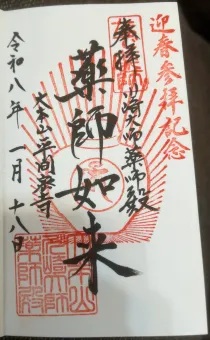 迎春参拝記念
奉拝
川崎大師薬師殿
薬師如来
大本山平間寺
令和八年一月十八日